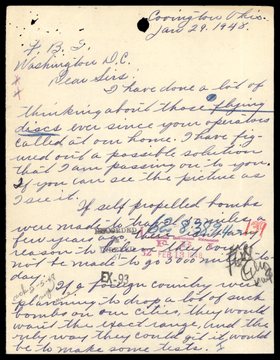 Covington Ohio.
Jan 29. 1948.
F. B. I.
Washington D.C.
Dear Sirs.
I have done a lot of
thinking about those flying
discs ever since your operators
called at our home. I have fig-
ured out a possible solution
that I am passing on to you.
If you can see the picture as
I see it.
If self propelled bombs
were made to travel miles a
few years ago
reason to believe they could
not be made to go 3000 miles to-
day.
EX-93
If a foreign country were
planning to drop a lot of such
bombs on our cities, they would
want the exact range, and the
only way they could get it would
be to make some tests. I